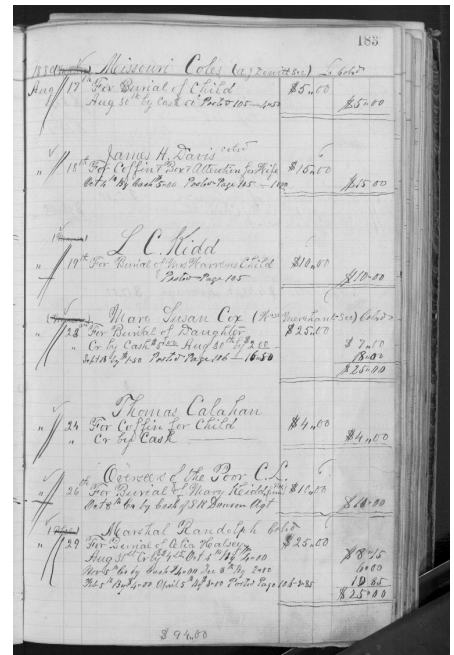 183
Missouri Coles Cold
Aug 17 For Burial of Child $5.00
Aug 31st by Cash Posted 105 $5.00
James H. Davis cold
18th For Coffin & Box & Attention for Wife $15.00
Oct 4th By Cash 5.00 Posted Page 105 $15.00
L. C. Kidd
19th For Burial of Child $10.00
Posted Page 105 $10.00
Mary Susan Cox Cold
23 For Burial of Daughter $25.00
" Cr by Cash Aug 30th by $2.00 $7.10
Posted Page 106 16.50 18.00
$25.00
Thomas Calahan
" 24 For Coffin for Child $4.00
" Cr by Cash $4.00
Overseer of the Poor C. L.
" 26th For Burial of Mary Kidd $10.00
Oct 8th Cr by Cash of Agt $10.00
Marshal Randolph Cold
" 29 For Burial of Celia Halsey $25.00
Aug 31st Cr by Oct 4th By 4.00 $8.15
Nov 5th Cr by Cash 4.00 Dec 3rd By 2.00 6.00
Feb 5th By $4.00 April 5th By 3.00 Posted Page 105 10.85
$25.00
$94.00